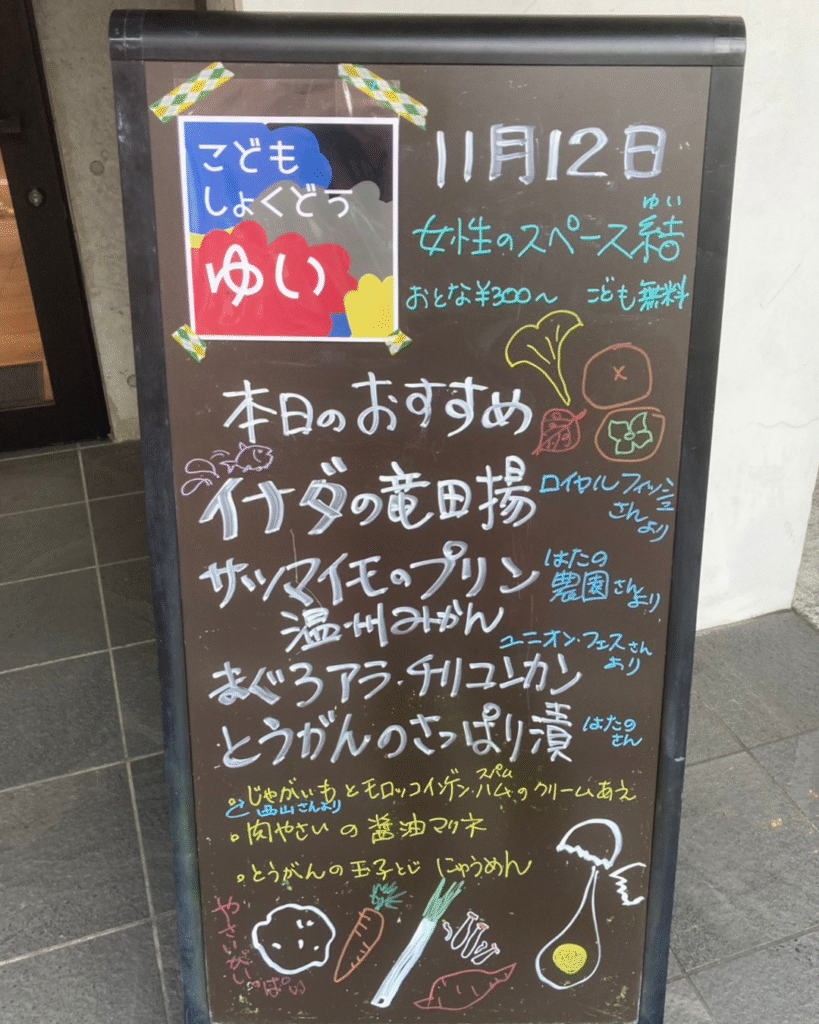 こども
しょくどう
ゆい
11月12日
ゆい
女性のスペース結
おとな¥300〜 こども無料
本日のおすすめ
イナダの竜田揚
ロイヤルフィッシュ
さん
より
サツマイモのプリン
はたの
農園さん
より
温州みかん
ユニオン・フェスさん
より
まぐろアラ・チリコンカン
とうがんのさっぱり漬
はたの
さん
スパム
・じゃがいもとモロッコインゲン・ハムのクリームあえ
西山さんより
・肉やさいの醤油マリネ
・とうがんの玉子とじ にゅうめん
やさいがいっぱい